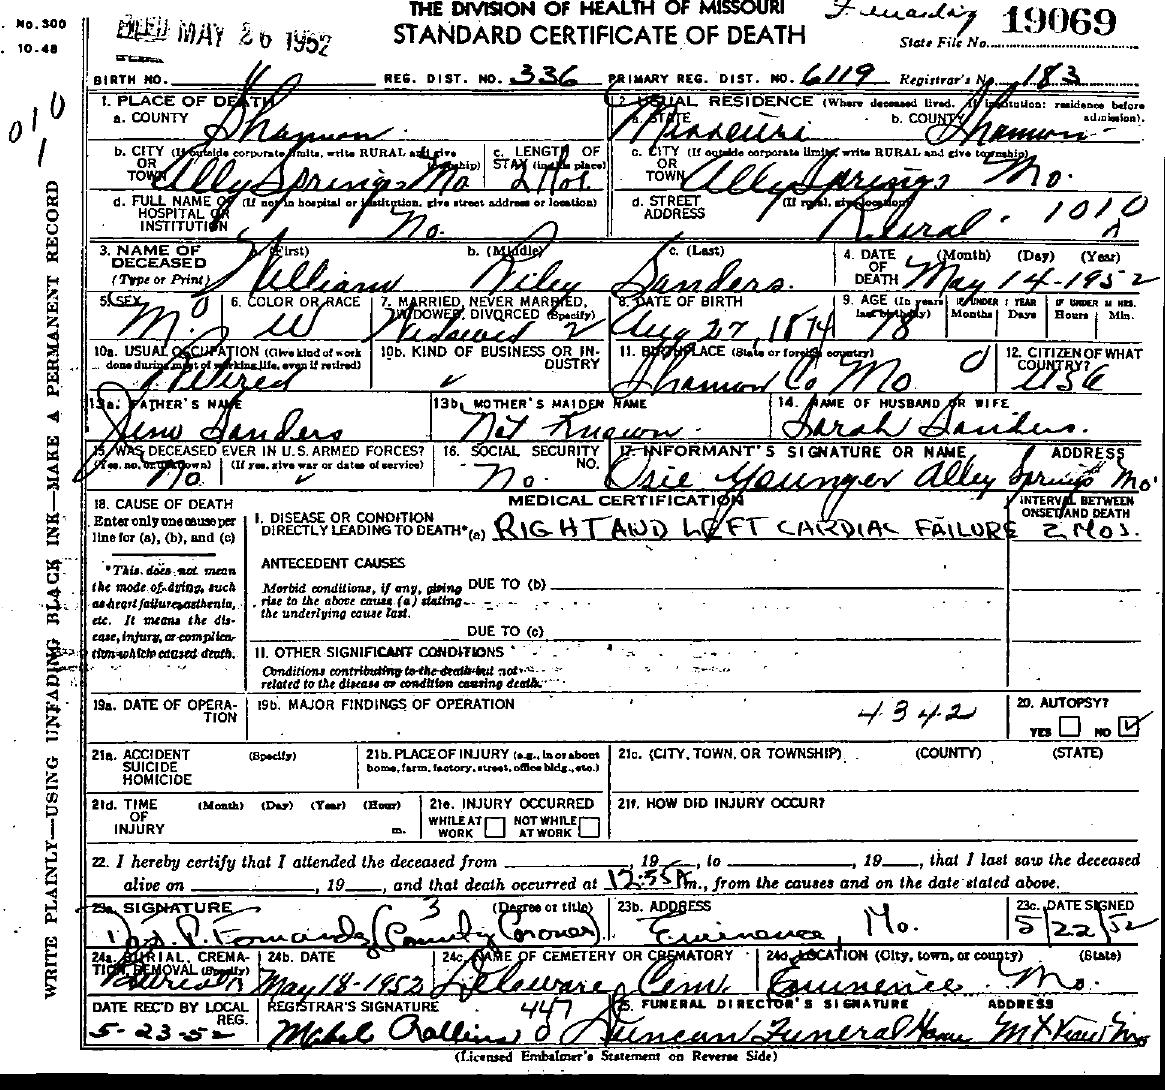 THE DIVISION OF HEALTH OF MISSOURI
STANDARD CERTIFICATE OF DEATH
No. 300
10-48
FILED MAY 26 1952
State File No. 19069
BIRTH NO. REG. DIST. NO. 336 PRIMARY REG. DIST. NO. 6119 Registrar's No. 183
010
1
WRITE PLAINLY—USING UNFADING BLACK INK—MAKE A PERMANENT RECORD
1. PLACE OF DEATH
a. COUNTY Shannon
2. USUAL RESIDENCE (Where deceased lived. If institution: residence before admission).
a. STATE Missouri b. COUNTY Shannon
b. CITY (If outside corporate limits, write RURAL and give township) OR TOWN Ally Springs Mo
c. LENGTH OF STAY (in this place)
c. CITY (If outside corporate limits, write RURAL and give township) OR TOWN Ally Springs Mo.
d. FULL NAME OF (If not in hospital or institution, give street address or location) HOSPITAL OR INSTITUTION No.
d. STREET ADDRESS (If rural, give location) Rural. 1010
3. NAME OF DECEASED (Type or Print)
a. (First) William b. (Middle) Riley c. (Last) Sanders.
4. DATE OF DEATH (Month) (Day) (Year) May 14-1952
5. SEX M. 0
6. COLOR OR RACE W
7. MARRIED, NEVER MARRIED, WIDOWED, DIVORCED (Specify) Widowed 2
8. DATE OF BIRTH Aug 27, 1874
9. AGE (In years last birthday) 78 IF UNDER 1 YEAR Months Days IF UNDER 24 HRS. Hours Min.
10a. USUAL OCCUPATION (Give kind of work done during most of working life, even if retired) Retired
10b. KIND OF BUSINESS OR INDUSTRY
11. BIRTHPLACE (State or foreign country) Shannon Co Mo 0
12. CITIZEN OF WHAT COUNTRY? USA
13a. FATHER'S NAME Sanders
13b. MOTHER'S MAIDEN NAME Not Known.
14. NAME OF HUSBAND OR WIFE Sarah Sanders.
15. WAS DECEASED EVER IN U.S. ARMED FORCES? (Yes, no, or unknown) (If yes, give war or dates of service) No.
16. SOCIAL SECURITY NO. No.
17. INFORMANT'S SIGNATURE OR NAME ADDRESS
Osie Younger Alley Springs Mo
18. CAUSE OF DEATH
Enter only one cause per line for (a), (b), and (c)
*This does not mean the mode of dying, such as heart failure, asthenia, etc. It means the disease, injury, or complication which caused death.
MEDICAL CERTIFICATION
INTERVAL BETWEEN ONSET AND DEATH
I. DISEASE OR CONDITION DIRECTLY LEADING TO DEATH* (a) RIGHT AND LEFT CARDIAC FAILURE 2 MOS.
ANTECEDENT CAUSES
Morbid conditions, if any, giving rise to the above cause (a) stating the underlying cause last.
DUE TO (b)
DUE TO (c)
II. OTHER SIGNIFICANT CONDITIONS
Conditions contributing to the death but not related to the disease or condition causing death.
19a. DATE OF OPERATION
19b. MAJOR FINDINGS OF OPERATION
4342
20. AUTOPSY? YES NO ✓
21a. ACCIDENT SUICIDE HOMICIDE (Specify)
21b. PLACE OF INJURY (e.g., in or about home, farm, factory, street, office bldg., etc.)
21c. (CITY, TOWN, OR TOWNSHIP) (COUNTY) (STATE)
21d. TIME OF INJURY (Month) (Day) (Year) (Hour) m.
21e. INJURY OCCURRED WHILE AT WORK NOT WHILE AT WORK
21f. HOW DID INJURY OCCUR?
22. I hereby certify that I attended the deceased from , 19 , to , 19 , that I last saw the deceased
alive on , 19 , and that death occurred at 12:55 A m., from the causes and on the date stated above.
23a. SIGNATURE (Degree or title) 3 (County Coroner)
23b. ADDRESS Eminence, Mo.
23c. DATE SIGNED 5/22/52
24a. BURIAL, CREMATION, REMOVAL (Specify) Burial
24b. DATE May 18-1952
24c. NAME OF CEMETERY OR CREMATORY Delaware Cem.
24d. LOCATION (City, town, or county) (State) Eminence. Mo.
DATE REC'D BY LOCAL REG. 5-23-52
REGISTRAR'S SIGNATURE Mabel Rollins 447 0
25. FUNERAL DIRECTOR'S SIGNATURE ADDRESS
Duncan Funeral Home
(Licensed Embalmer's Statement on Reverse Side)